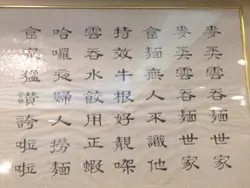 麥奀雲吞麵世家
麥奀雲吞麵世家
食麵無人不識他
持效牛根好靚㗎
雲吞水餃用正蝦
哈囉婦人撈麵
食猛讚誇啦啦